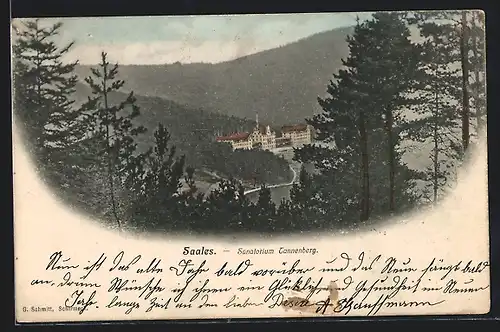 Saales. – Sanatorium Tannenberg.
Nun ist das alte Jahr bald vorüber und das Neue fängt bald
an, drum Wünsche ich ihnen ein Glückliches und Gesundheit im Neuen
Jahr langes Zeit an den lieben
G. Schmitt, Schirmeck